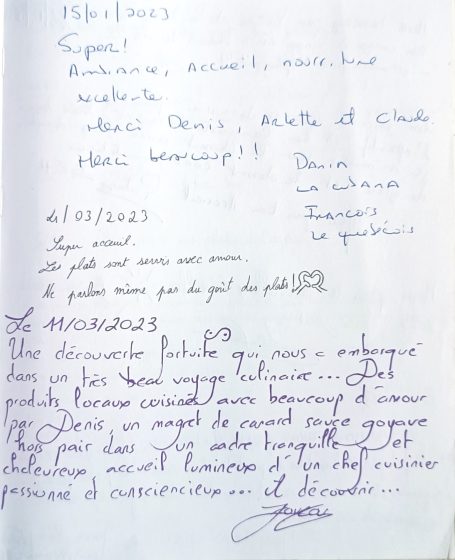 15/01/2023
Super!
Ambiance, accueil, nourriture
excellente.
Merci Denis, Arlette et Claude.
Merci beaucoup!!
Dania
LA CUBANA
François
Le québécois
/03/2023
Super acceuil.
Les plats sont servis avec amour.
Ne parlons même pas du goût des plats!
Le 11/03/2023
Une découverte fortuite qui nous a embarqué
dans un très beau voyage culinaire... Des
produits locaux cuisinés avec beaucoup d'amour
par Denis, un magret de canard sauce goyave
hors pair dans un cadre tranquille et
chaleureux accueil lumineux d'un chef cuisinier
passionné et consciencieux... à découvrir...